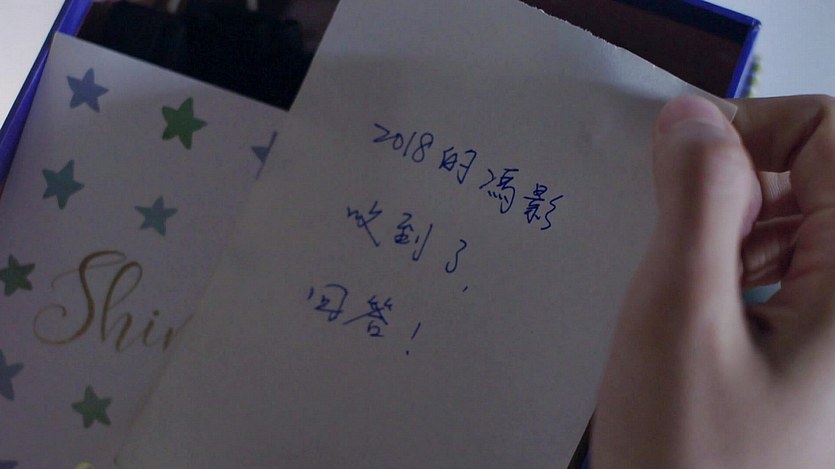 2018的馮影
收到了,
回答!